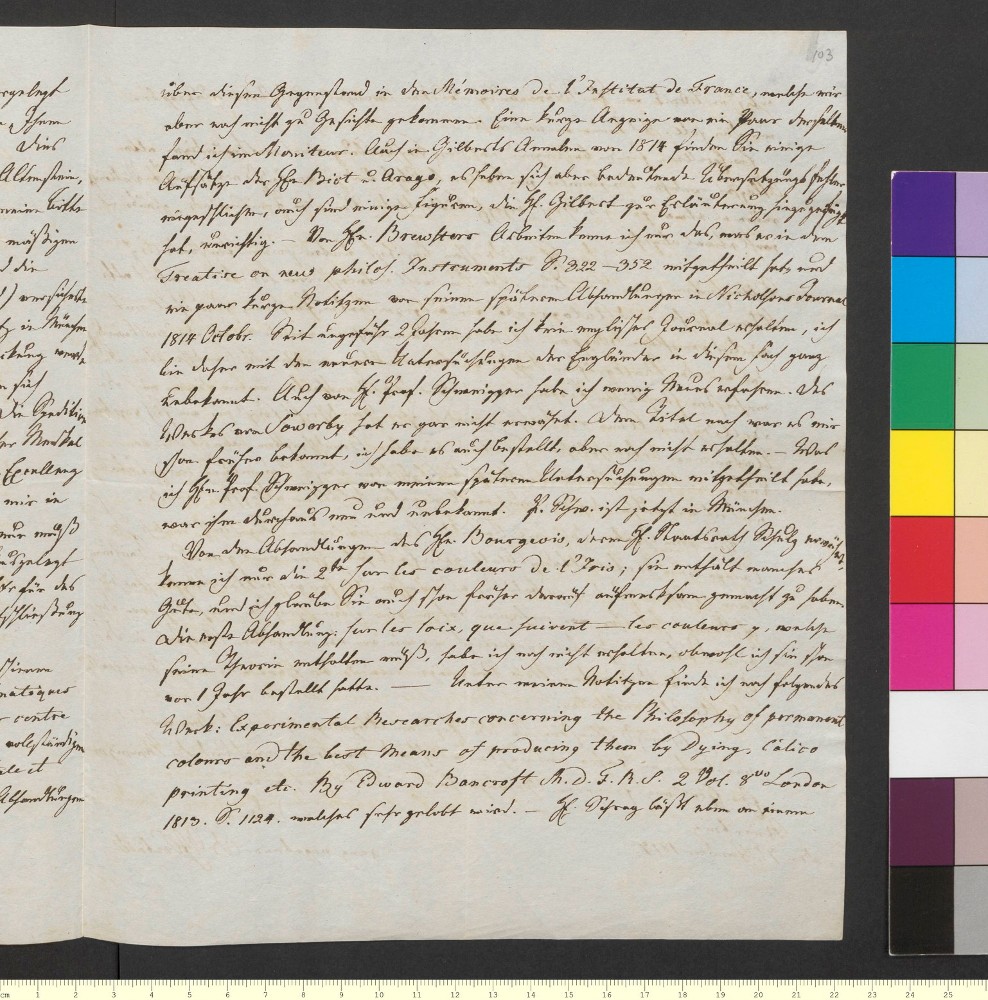 103
über diesen Gegenstand in den Mémoires de l'Institut de France, welche mir
aber noch nicht zu Gesichte gekommen. Eine kurze Anzeige von ein Paar derselben
fand ich im Moniteur. Auch in Gilberts Annalen von 1814 finden Sie einige
Aufsätze der Hn Biot u. Arago, es haben sich aber bedeutende Übersetzungsfehler
eingeschlichen, auch sind einige Figuren, die H. Gilbert zur Erläuterung hinzugefügt
hat, unrichtig. – Von Hn. Brewsters Arbeiten kenne ich nur das, was er in dem
Treatise on new philos. Instruments S. 322–352 mitgetheilt hat, und
ein paar kurze Notitzen von seinen spätern Abhandlungen in Nicholsons Journal
1814 Octobr. Seit ungefähr 2 Jahren habe ich kein englisches Journal erhalten, ich
bin daher mit den neuern Untersuchungen der Engländer in diesem Fach ganz
unbekannt. Auch von H. Prof. Schweigger habe ich wenig Neues erfahren. Des
Werkes von Sowerby hat er gar nicht erwähnt. Dem Titel nach war es mir
schon früher bekannt, ich habe es auch bestellt, aber noch nicht erhalten. – Was
ich Hn. Prof. Schweigger von meinen spätern Untersuchungen mitgetheilt habe,
war ihm durchaus neu und unbekannt. P. Schw. ist jetzt in München.
Von den Abhandlungen des Hn. Bourgeois, deren H. Staatsrath Schulz erwähnt,
kenne ich nur die 2te sur les couleurs de l'Iris; sie enthält manches
Gute, und ich glaube Sie auch schon früher darauf aufmerksam gemacht zu haben.
Die erste Abhandlung: sur les loix, que suivent — les couleurs p, welche
seine Theorie enthalten muß, habe ich noch nicht erhalten, obwohl ich sie schon
vor 1 Jahr bestellt hatte. — Unter meinen Notitzen finde ich noch folgendes
Werk: Experimental Researches concerning the Philosophy of permanent
colours and the best Means of producing them by Dying, Calico
printing etc. By Edward Bancroft M. D. F. R. S. 2 Vol. 8vo London
1813. S. 1124. welches sehr gelobt wird. – H. Schrag läßt eben an einem